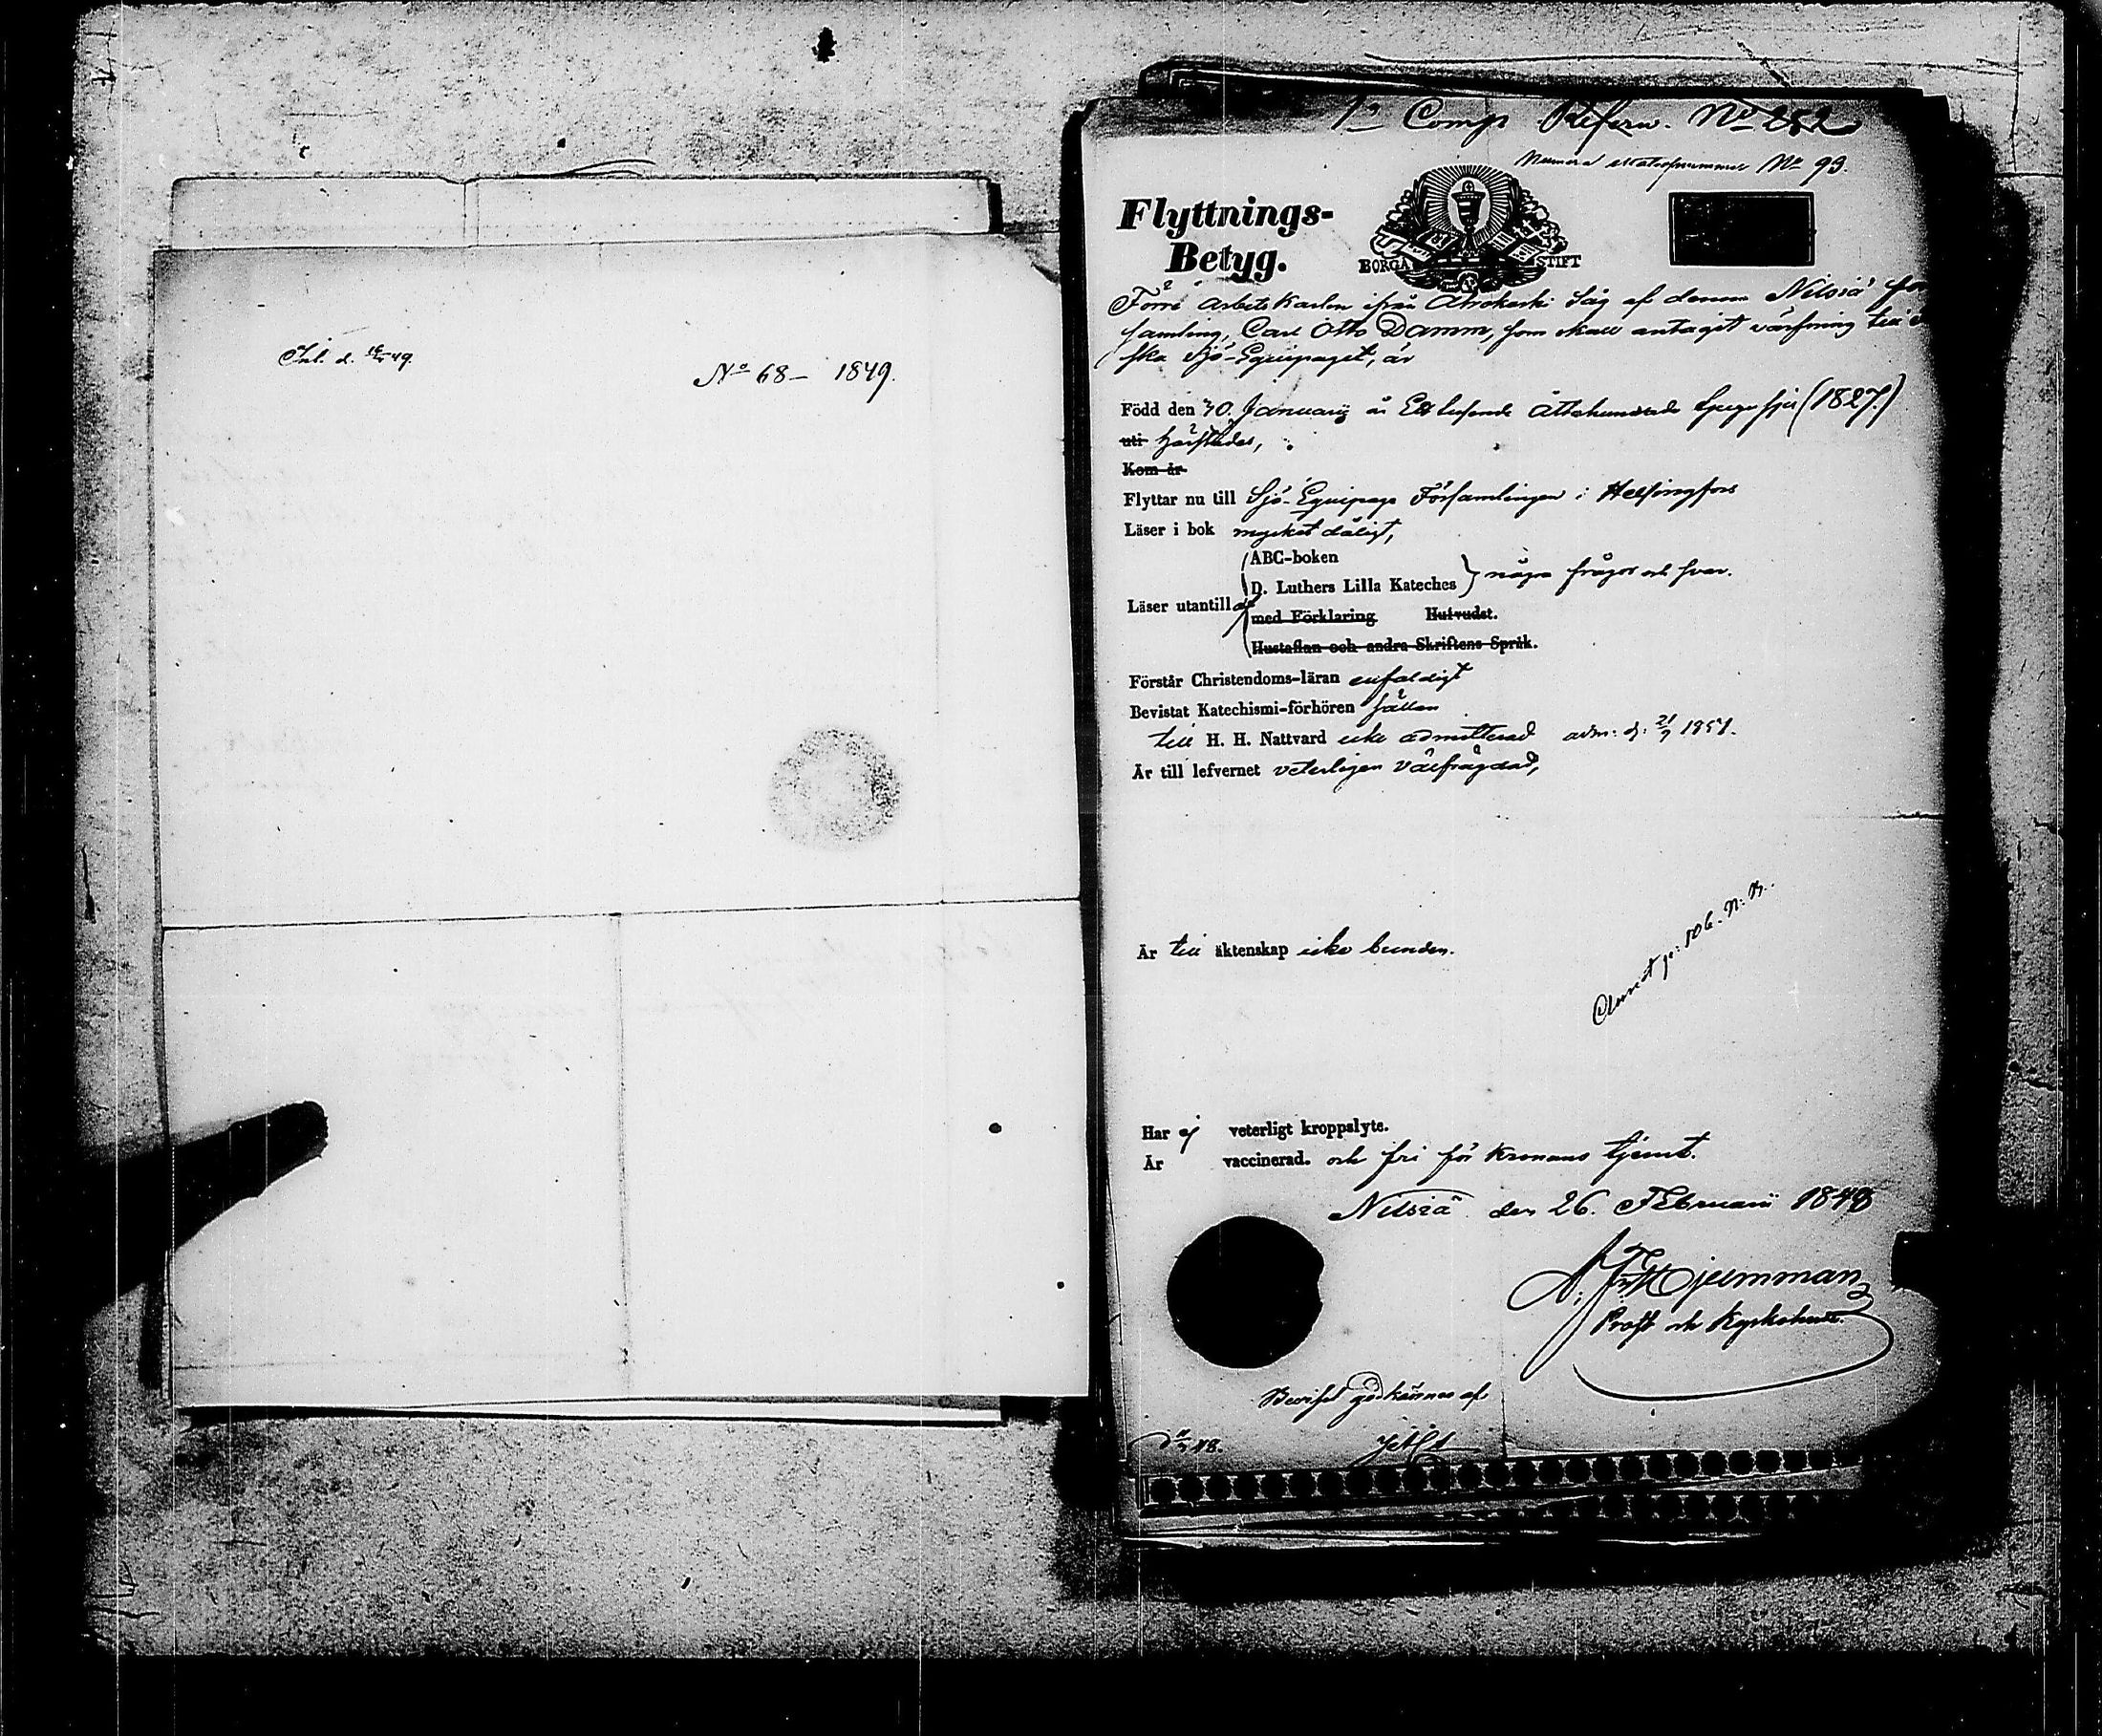 Inl. d. 49.
No 68 – 1849.
1a Comp Refern. No 252
Numera No 99.
Flyttnings-
Betyg.
BORGÅ STIFT
Förre arbetskarlen ifrån Atrokoski Såg af denna Nilsiä för
samling, Carl Otto Damm, som skall antagit värfning till
ska Sjö-Equipaget, är
Född den 30. Januarii år Ett tusende Åttahundrade tjugu sju (1827.)
uti härstädes,
Kom år
Flyttar nu till Sjö-Equipage Församlingen i Helsingfors
Läser i bok mycket dåligt,
ABC-boken
D. Luthers Lilla Kateches några frågor och svar.
Läser utantill af
med Förklaring Hufvudst.
Hustaflan och andra Skriftens Språk.
Förstår Christendoms-läran enfaldigt
Bevistat Katechismi-förhören sällan
till H. H. Nattvard icke admitterad adm. d. 21/7 1851.
Är till lefvernet veterligen välfrägdad,
Är till äktenskap icke bunden.
106. N: B.
Har ej veterligt kroppslyte.
Är vaccinerad. och fri för Kronans tjenst.
Nilsiä den 26. Februarii 1848
Prost och Kyrkoherde.
Beviset godkännes af
48.